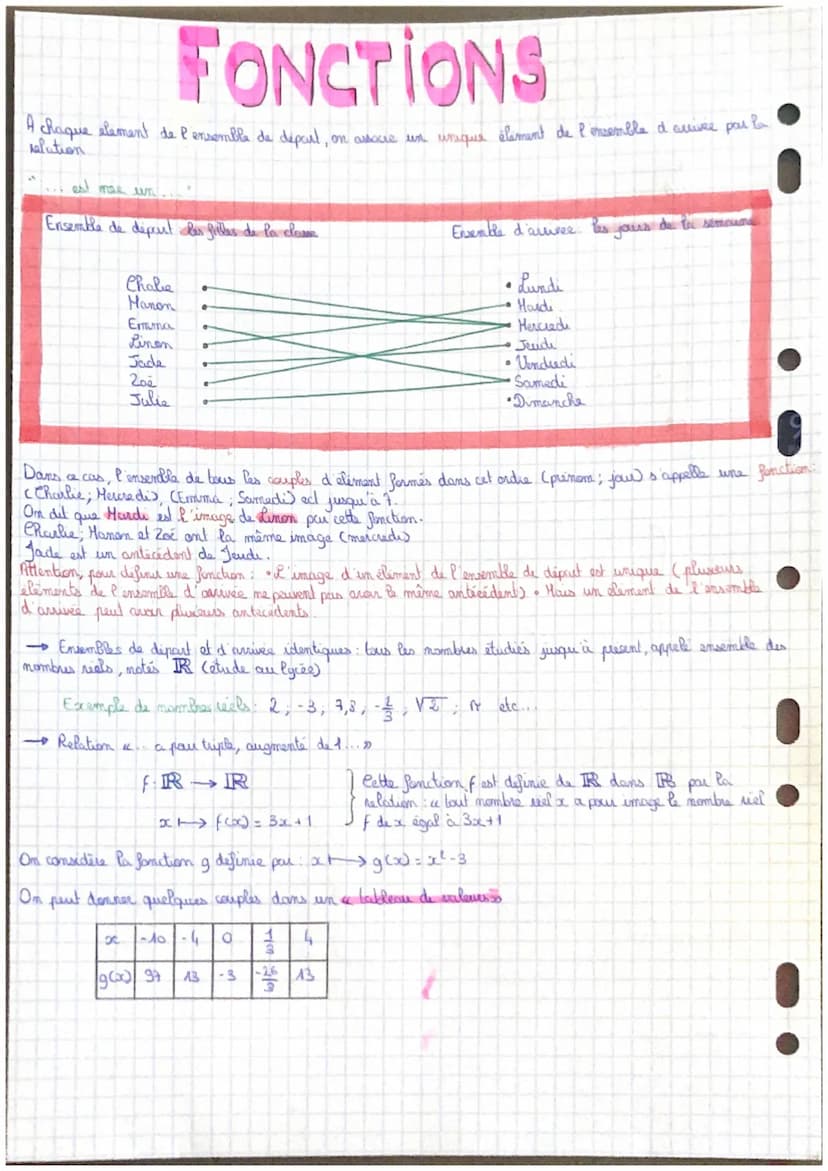 FONCTIONS
A chaque élement de l'ensemble de départ, on associe un unique élement de l'ensemble d'arrivée par la
relation
"... est mae un ..."
Ensemble de départ : les filles de la classe
Ensemble d'arrivée : les jours de la semaine
Charlie
Manon
Emma
Linon
Jade
Zoé
Julie
• Lundi
• Mardi
Mercredi
• Jeudi
• Vendredi
Samedi
• Dimanche
Dans ce cas, l'ensemble de tous les couples d'élément formés dans cet ordre (prénom ; jour) s'appelle une fonction :
(Charlie ; Mercredi), (Emma ; Samedi) ect jusqu'à 7.
On dit que Mardi est l'image de Linon par cette fonction.
Charlie ; Manon et Zoé ont la même image (mercredi)
Jade est un antécédent de Jeudi.
Attention, pour définir une fonction : • L'image d'un élément de l'ensemble de départ est unique (plusieurs
éléments de l'ensemble d'arrivée ne peuvent pas avoir le même antécédent) • Mais un élement de l'ensemble
d'arrivée peut avoir plusieurs antécédents.
→ Ensembles de départ et d'arrivée identiques : tous les nombres étudiés jusqu'à présent, appelé ensemble des
nombres réels, notés ℝ (étude au lycée)
Exemple de nombres réels : 2 ; -3 ; 7,8 ; -1/3 ; √2 ; π etc...
→ Relation «... a pour triple, augmenté de 1...»
f : ℝ → ℝ
x ↦ f(x) = 3x+1
Cette fonction f est définie de ℝ dans ℝ par la
relation : a tout nombre réel x a pour image le nombre réel
f de x égal à 3x+1
On considère la fonction g définie par : x ↦ g(x) = x²-3
On peut donner quelques couples dans un « tableau de valeurs »
x | -10 | -4 | 0 | 1/3 | 4
g(x) | 97 | 13 | -3 | -26/9 | 13